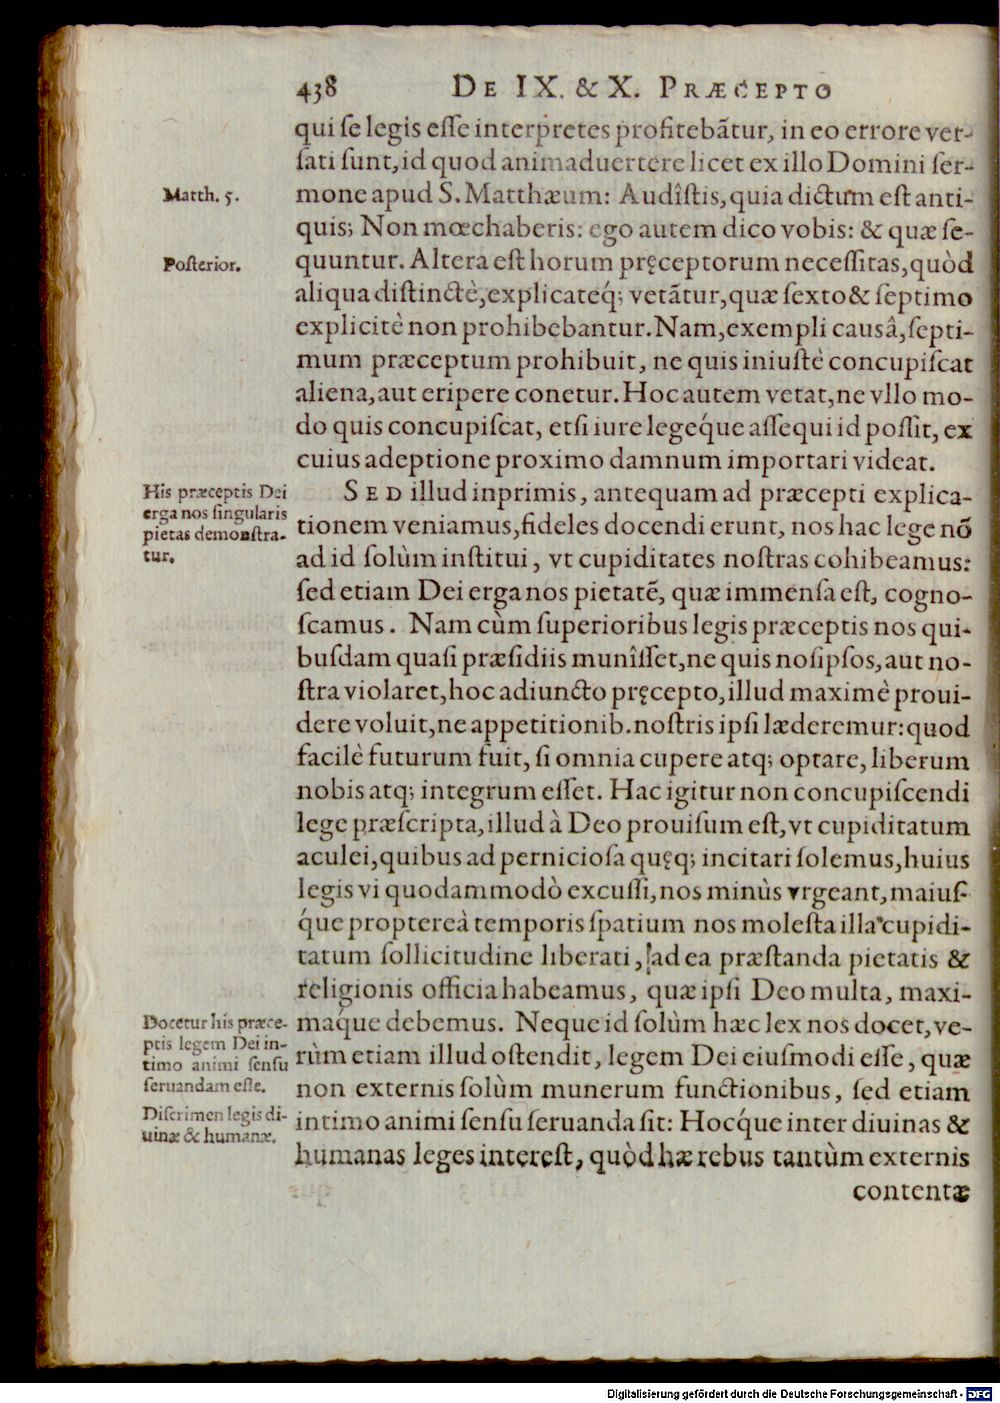 438 DE IX. & X. PRÆCEPTO
qui ſe legis eſſe interpretes profitebãtur, in eo errore ver-
ſati ſunt, id quod animaduertere licet ex illo Domini ſer-
Matth. 5. mone apud S. Matthæum: Audîſtis, quia dictum eſt anti-
quis; Non mœchaberis: ego autem dico vobis: & quæ ſe-
Poſterior. quuntur. Altera eſt horum pręceptorum neceſſitas, quòd
aliqua diſtinctè, explicateq́; vetãtur, quæ ſexto & ſeptimo
explicitè non prohibebantur. Nam, exempli causâ, ſepti-
mum præceptum prohibuit, ne quis iniuſtè concupiſcat
aliena, aut eripere conetur. Hoc autem vetat, ne vllo mo-
do quis concupiſcat, etſi iure legeq́ue aſſequi id poſſit, ex
cuius adeptione proximo damnum importari videat.
His præceptis Dei
erga nos ſingularis
pietas demonſtra-
tur.
SED illud inprimis, antequam ad præcepti explica-
tionem veniamus, fideles docendi erunt, nos hac lege nõ
ad id ſolùm inſtitui, vt cupiditates noſtras cohibeamus:
ſed etiam Dei erga nos pietatẽ, quæ immenſa eſt, cogno-
ſcamus. Nam cùm ſuperioribus legis præceptis nos qui-
buſdam quaſi præſidiis munîſſet, ne quis noſipſos, aut no-
ſtra violaret, hoc adiuncto pręcepto, illud maximè proui-
dere voluit, ne appetitionib. noſtris ipſi læderemur: quod
facilè futurum fuit, ſi omnia cupere atq; optare, liberum
nobis atq; integrum eſſet. Hac igitur non concupiſcendi
lege præſcripta, illud à Deo prouiſum eſt, vt cupiditatum
aculei, quibus ad pernicioſa quęq; incitari ſolemus, huius
legis vi quodammodò excuſſi, nos minùs vrgeant, maiuſ-
q́ue proptereà temporis ſpatium nos moleſta illa cupidi-
tatum ſollicitudine liberati, ad ea præſtanda pietatis &
religionis officia habeamus, quæ ipſi Deo multa, maxi-
Docetur his præce-
ptis legem Dei in-
timo animi ſenſu
ſeruandam eſſe.
maq́ue debemus. Neque id ſolùm hæc lex nos docet, ve-
rùm etiam illud oſtendit, legem Dei eiuſmodi eſſe, quæ
non externis ſolùm munerum functionibus, ſed etiam
Diſcrimen legis di-
uinæ & humanæ.
intimo animi ſenſu ſeruanda ſit: Hocq́ue inter diuinas &
humanas leges intereſt, quòd hæ rebus tantùm externis
contentæ
Digitalisierung gefördert durch die Deutsche Forschungsgemeinschaft - DFG